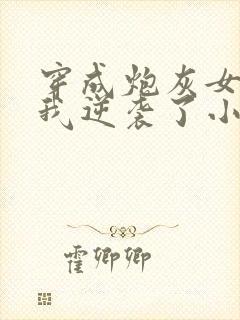 穿成炮灰女
我逆袭了小
霍卿卿